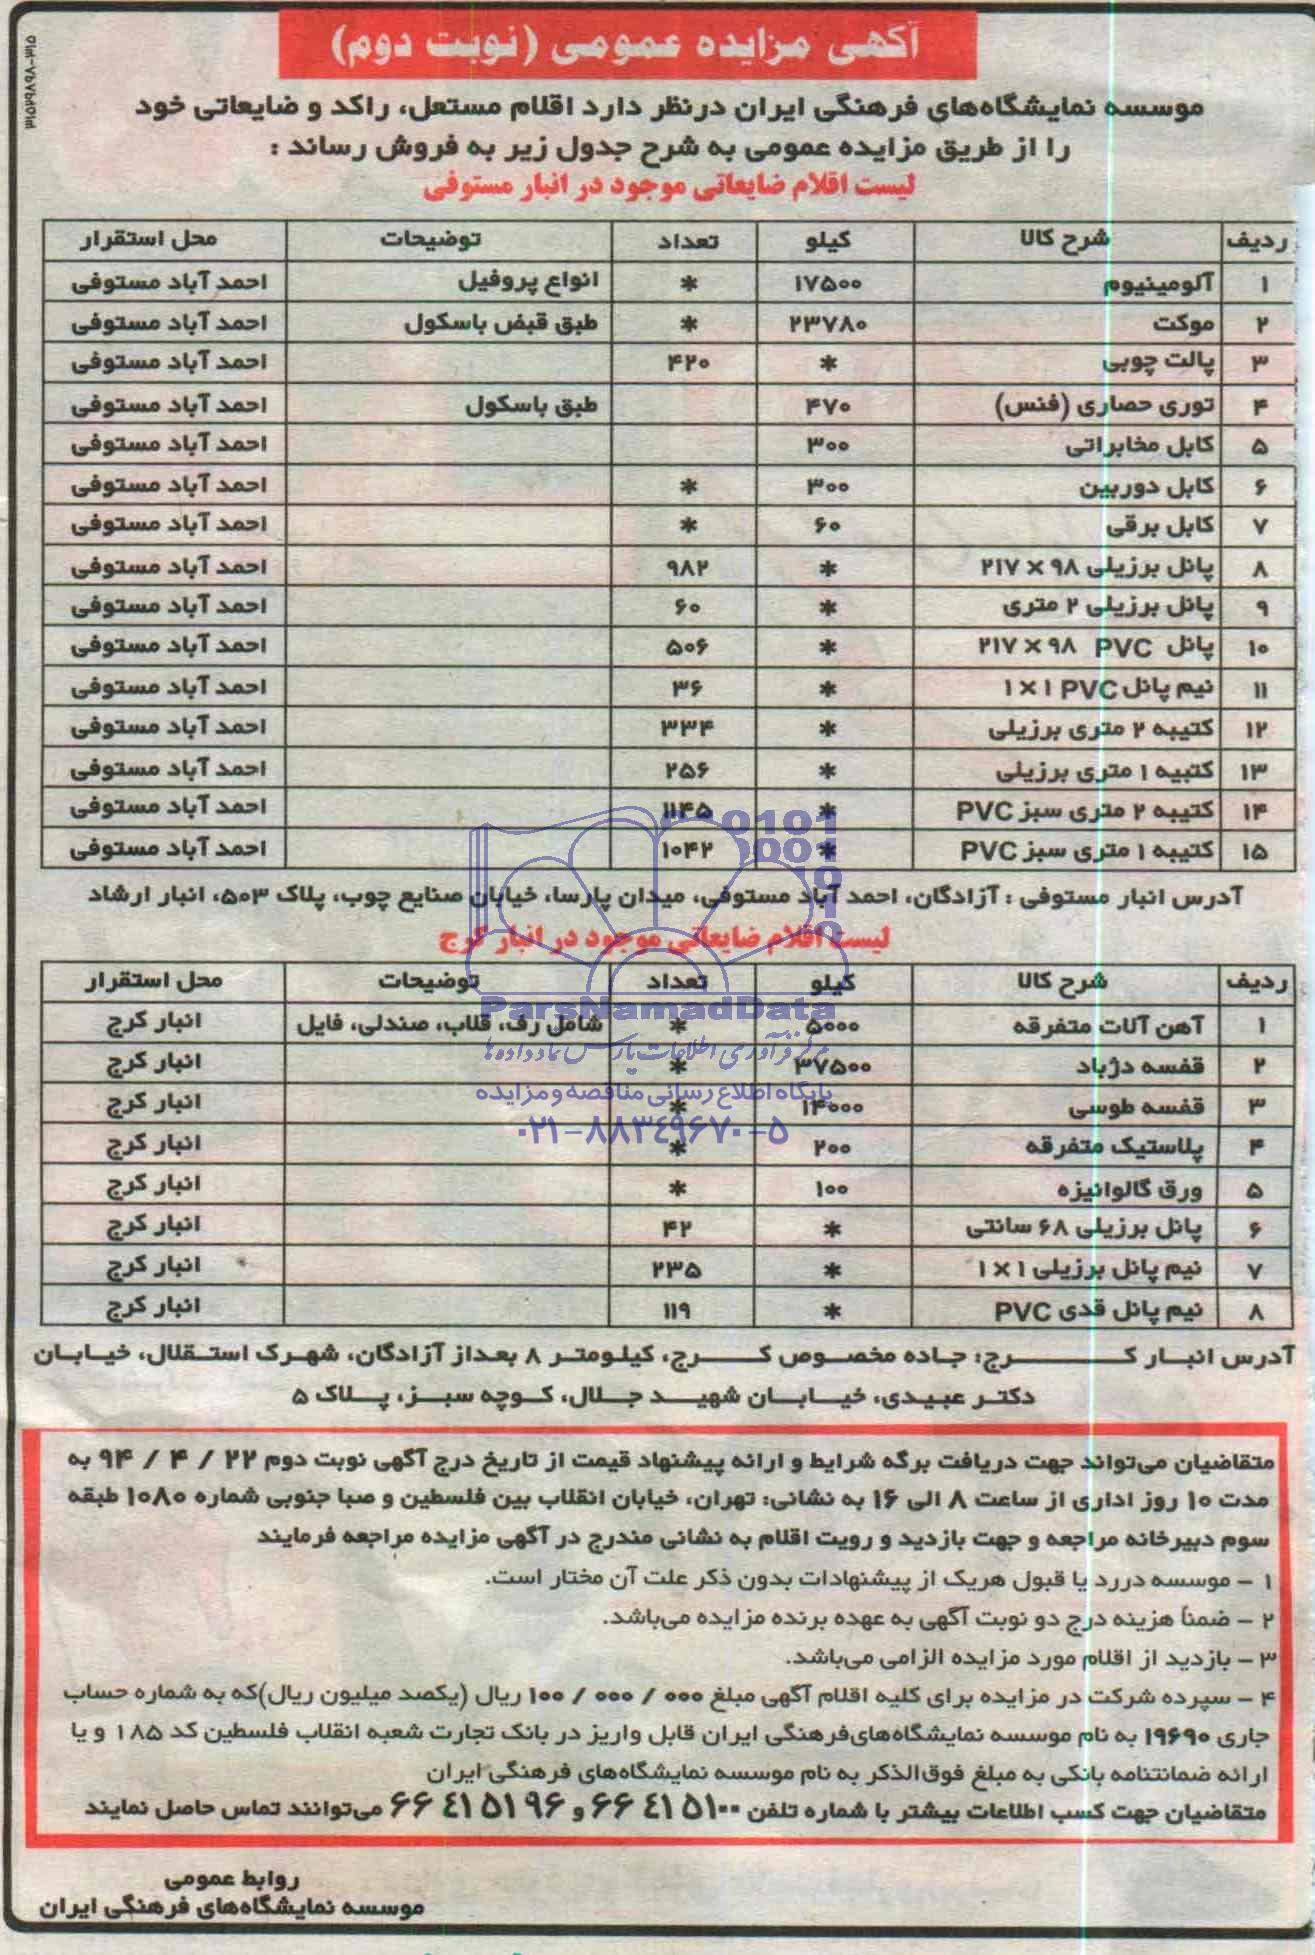 آگهی مزایده عمومی (نوبت دوم)
موسسه نمایشگاه‌های فرهنگی ایران درنظر دارد اقلام مستعل، راکد و ضایعاتی خود
را از طریق مزایده عمومی به شرح جدول زیر به فروش رساند :
لیست اقلام ضایعاتی موجود در انبار مستوفی
ردیف شرح کالا کیلو تعداد توضیحات محل استقرار
۱ آلومینیوم ۱۷۵۰۰ * انواع پروفیل احمد آباد مستوفی
۲ موکت ۲۳۷۸۰ * طبق قبض باسکول احمد آباد مستوفی
۳ پالت چوبی * ۴۲۰ احمد آباد مستوفی
۴ توری حصاری (فنس) ۴۷۰ طبق باسکول احمد آباد مستوفی
۵ کابل مخابراتی ۳۰۰ احمد آباد مستوفی
۶ کابل دوربین ۳۰۰ * احمد آباد مستوفی
۷ کابل برقی ۶۰ * احمد آباد مستوفی
۸ پانل برزیلی ۹۸ × ۲۱۷ * ۹۸۲ احمد آباد مستوفی
۹ پانل برزیلی ۲ متری * ۶۰ احمد آباد مستوفی
۱۰ پانل PVC ۹۸ × ۲۱۷ * ۵۰۶ احمد آباد مستوفی
۱۱ نیم پانل PVC ۱ × ۱ * ۳۶ احمد آباد مستوفی
۱۲ کتیبه ۲ متری برزیلی * ۳۳۴ احمد آباد مستوفی
۱۳ کتبیه ۱ متری برزیلی * ۲۵۶ احمد آباد مستوفی
۱۴ کتیبه ۲ متری سبز PVC * ۱۱۴۵ احمد آباد مستوفی
۱۵ کتیبه ۱ متری سبز PVC * ۱۰۴۲ احمد آباد مستوفی
آدرس انبار مستوفی : آزادگان، احمد آباد مستوفی، میدان پارسا، خیابان صنایع چوب، پلاک ۵۰۳، انبار ارشاد
لیست اقلام ضایعاتی موجود در انبار کرج
ردیف شرح کالا کیلو تعداد توضیحات محل استقرار
۱ آهن آلات متفرقه ۵۰۰۰ * شامل رف، قلاب، صندلی، فایل انبار کرج
۲ قفسه دژباد ۳۷۵۰۰ * انبار کرج
۳ قفسه طوسی ۱۴۰۰۰ * انبار کرج
۴ پلاستیک متفرقه ۲۰۰ * انبار کرج
۵ ورق گالوانیزه ۱۰۰ * انبار کرج
۶ پانل برزیلی ۶۸ سانتی * ۴۲ انبار کرج
۷ نیم پانل برزیلی ۱ × ۱ * ۲۳۵ انبار کرج
۸ نیم پانل قدی PVC * ۱۱۹ انبار کرج
ParsNamadData
مرکز فرآوری اطلاعات پارس نماد داده‌ها
پایگاه اطلاع رسانی مناقصه و مزایده
۰۲۱-۸۸۳۴۹۶۷۰-۵
آدرس انبار کرج: جاده مخصوص کرج، کیلومتر ۸ بعداز آزادگان، شهرک استقلال، خیابان
دکتر عبیدی، خیابان شهید جلال، کوچه سبز، پلاک ۵
متقاضیان می‌تواند جهت دریافت برگه شرایط و ارائه پیشنهاد قیمت از تاریخ درج آگهی نوبت دوم ۲۲ / ۴ / ۹۴ به
مدت ۱۰ روز اداری از ساعت ۸ الی ۱۶ به نشانی: تهران، خیابان انقلاب بین فلسطین و صبا جنوبی شماره ۱۰۸۰ طبقه
سوم دبیرخانه مراجعه و جهت بازدید و رویت اقلام به نشانی مندرج در آگهی مزایده مراجعه فرمایند
۱ - موسسه دررد یا قبول هریک از پیشنهادات بدون ذکر علت آن مختار است.
۲ - ضمناً هزینه درج دو نوبت آگهی به عهده برنده مزایده می‌باشد.
۳ - بازدید از اقلام مورد مزایده الزامی می‌باشد.
۴ - سپرده شرکت در مزایده برای کلیه اقلام آگهی مبلغ ۰۰۰ / ۰۰۰ / ۱۰۰ ریال (یکصد میلیون ریال)که به شماره حساب
جاری ۱۹۶۹۰ به نام موسسه نمایشگاه‌های‌فرهنگی ایران قابل واریز در بانک تجارت شعبه انقلاب فلسطین کد ۱۸۵ و یا
ارائه ضمانتنامه بانکی به مبلغ فوق‌الذکر به نام موسسه نمایشگاه‌های فرهنگی ایران
متقاضیان جهت کسب اطلاعات بیشتر با شماره تلفن ۶۶۴۱۵۱۰۰ و ۶۶۴۱۵۱۹۶ می‌توانند تماس حاصل نمایند
روابط عمومی
موسسه نمایشگاه‌های فرهنگی ایران